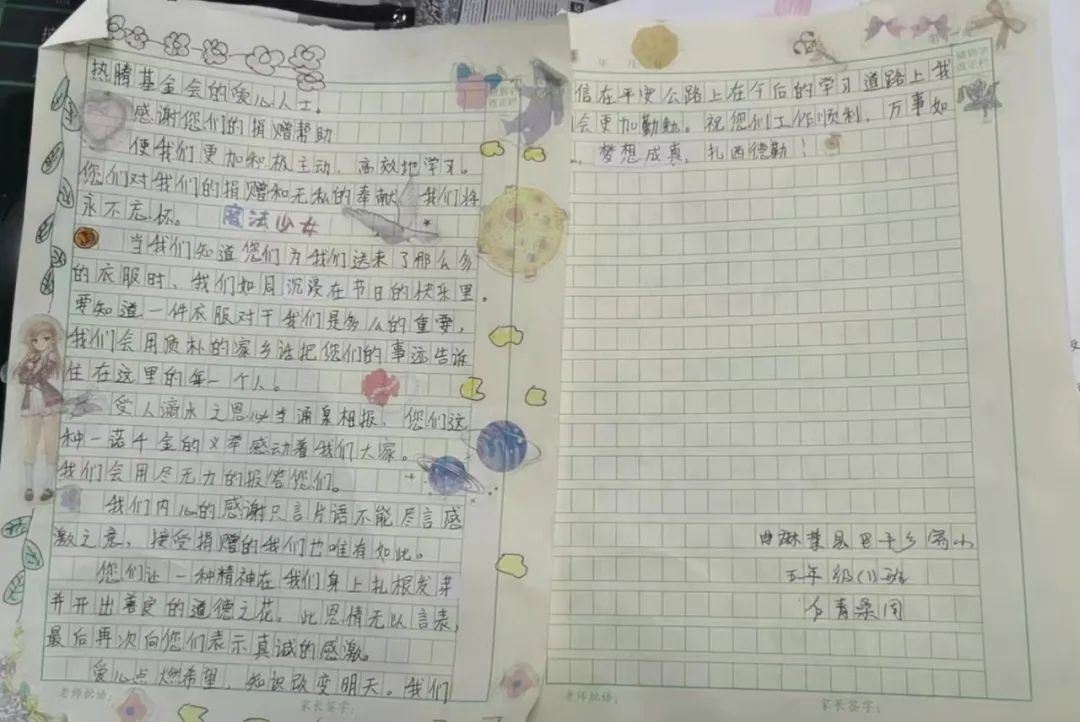 热腾基金会的爱心人士。
感谢您们的捐赠帮助
使我们更加积极主动、高效地学习。
您们对我们的捐赠和无私的奉献，我们将
永不忘怀。
魔法少女
当我们知道您们为我们送来了那么多
的衣服时、我们如同沉浸在节日的快乐里。
要知道一件衣服对于我们是多么的重要，
我们会用质朴的家乡话把您们的事迹告诉
住在这里的每一个人。
受人滴水之恩必当涌泉相报，您们这
种一诺千金的义举感动着我们大家。
我们会用尽无力的报答您们。
我们内心的感谢只言片语不能尽言感
激之意，接受捐赠的我们也唯有如此。
您们让一种精神在我们身上扎根发芽
并开出善良的道德之花。此恩情无以言表，
最后再次向您们表示真诚的感激。
爱心点燃希望，知识改变明天。我们
老师批语：
家长签字：
年 月 日
错别字
改正栏
信在平安公路上在今后的学习道路上我
会更加勤勉。祝您们工作顺利，万事如
，梦想成真，扎西德勒！
县巴干乡寄小
五年级(1)班
青桑周
老师批语：
家长签字：